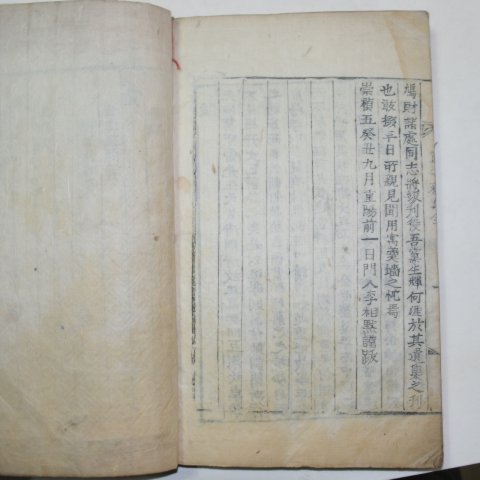 鳩財諸處同志將發刋役吾黨生輝何涯於其遺集之刋
也敢掇平日所親見聞用寓羹墻之忱焉
崇禎五癸丑九月重陽前一日門人李相黙謹跋